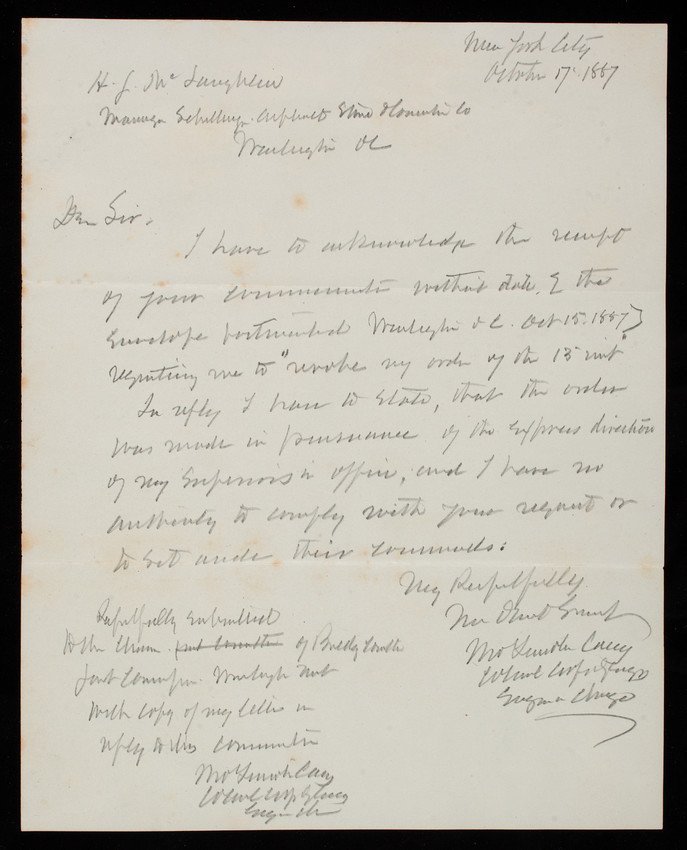 New York City
October 17. 1887
H. J. McLaughlin
Manager Schillinger Asphalt Stone & Concrete Co
Washington DC
Dear Sir,
I have to acknowledge the receipt
of your communication without date, & the
Envelope postmarked Washington D.C. Oct 15. 1887)
requesting me to "revoke my order of the 13 inst"
In reply I have to state, that the order
was made in pursuance of the express direction
of my Superiors in office, and I have no
authority to comply with your request or
to set aside their commands:
Very Respectfully
Your Obedt Servant
Thos Lincoln Casey
Colonel Corps of Engrs
Engineer in Charge
Respectfully submitted
to the Chairm of Building Comttee
Joint Commission. Washington Mnt
with copy of my letter in
reply to this communication
Thos Lincoln Casey
Colonel Corps of Engrs